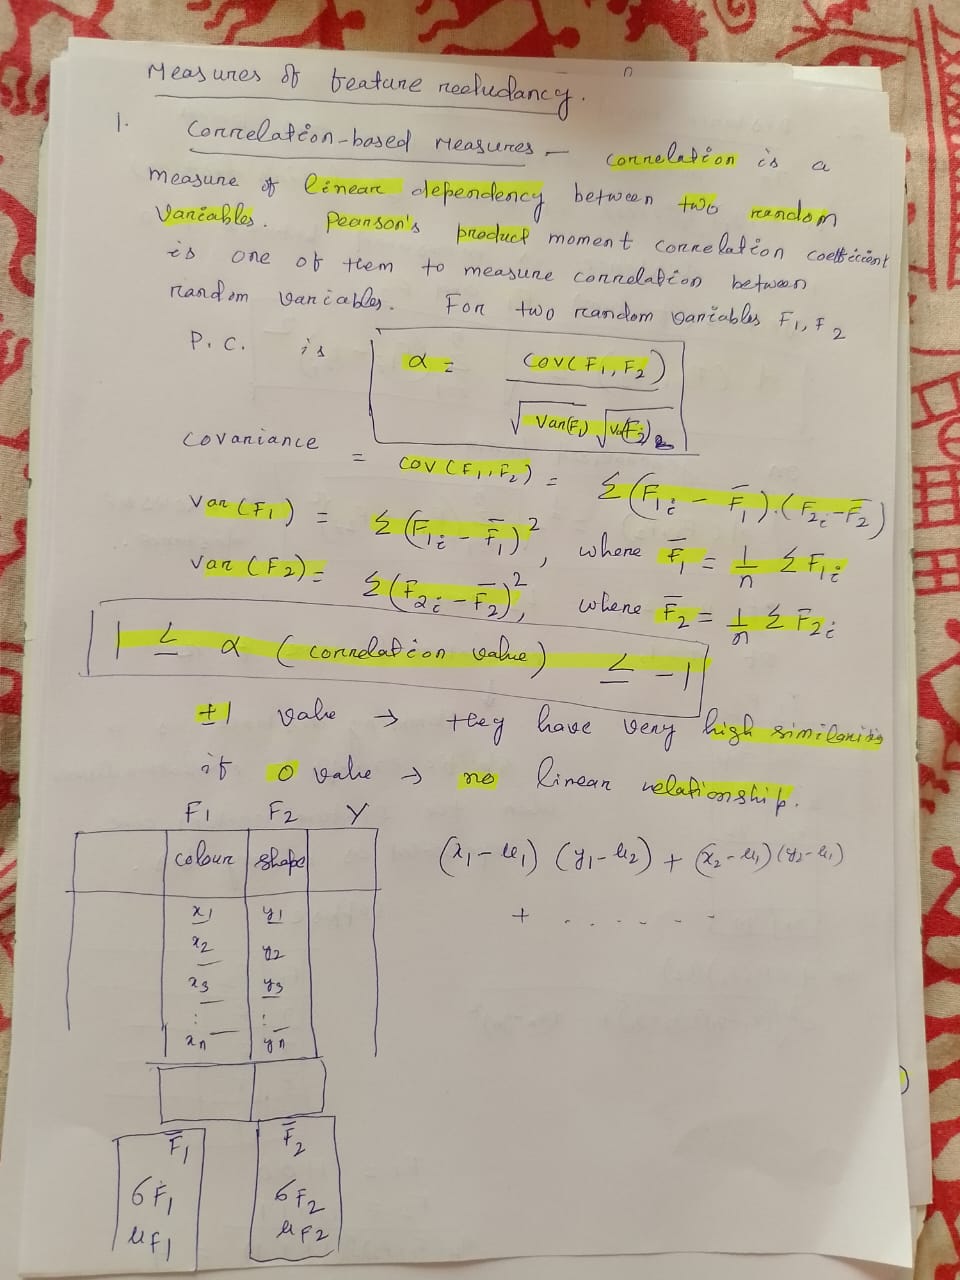 Measures of feature redudancy.
1. Correlation-based Measures - correlation is a
measure of linear dependency between two random
Variables. Pearson's product moment correlation coefficient
is one of them to measure correlation between
random variables. For two random variables F₁, F₂
P. C. is α = COV(F₁, F₂) / √Var(F₁) √Var(F₂)
Covariance = COV(F₁, F₂) = Σ(F₁ᵢ - F̄₁).(F₂ᵢ - F̄₂)
Var(F₁) = Σ(F₁ᵢ - F̄₁)², where F̄₁ = 1/n Σ F₁ᵢ
Var(F₂) = Σ(F₂ᵢ - F̄₂)², where F̄₂ = 1/n Σ F₂ᵢ
1 ≤ α (correlation value) ≤ -1
±1 value → they have very high similarity
if 0 value → no linear relationship.
F₁ F₂ Y
colour shape
(x₁ - μ₁) (y₁ - μ₂) + (x₂ - μ₁) (y₂ - μ₁)
+ . . . . . -
x₁ y₁
x₂ y₂
x₃ y₃
: :
xₙ yₙ
F̄₁ F̄₂
σF₁ σF₂
μF₁ μF₂